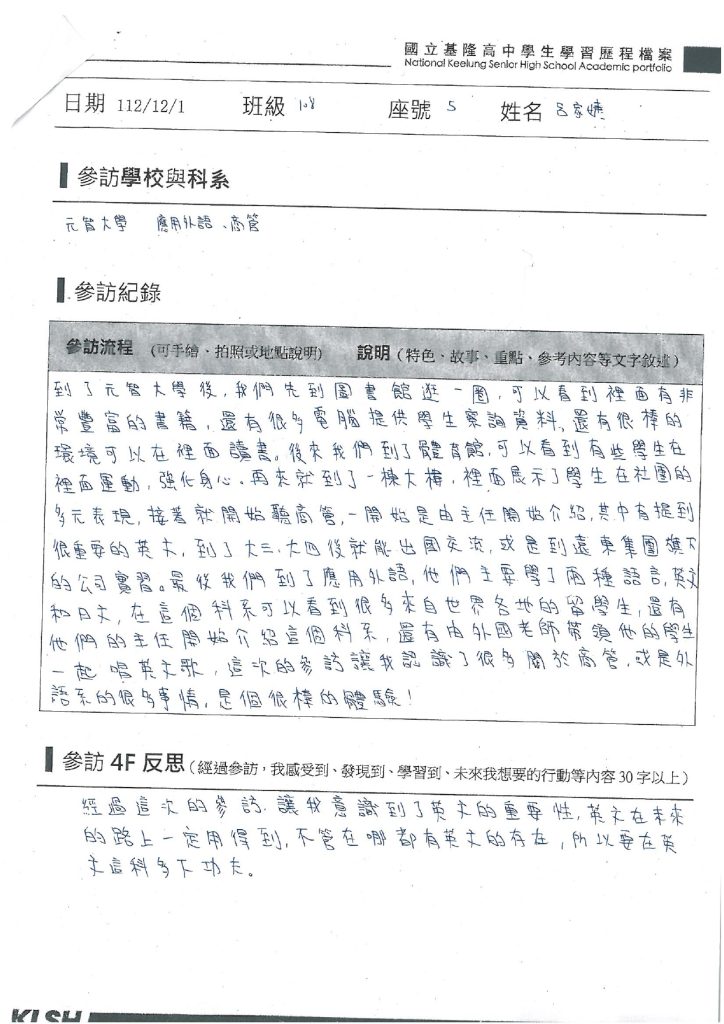 國立基隆高中學生學習歷程檔案
National Keelung Senior High School Academic portfolio
日期 112/12/1 班級 108 座號 5 姓名 呂家嬑
參訪學校與科系
元智大學 應用外語、商管
參訪紀錄
參訪流程 (可手繪、拍照或地點說明) 說明(特色、故事、重點、參考內容等文字敘述)
到了元智大學後,我們先到圖書館逛一圈,可以看到裡面有非
常豐富的書籍,還有很多電腦提供學生察詢資料,還有很棒的
環境可以在裡面讀書。後來我們到了體育館,可以看到有些學生在
裡面運動,強化身心。再來就到了一棟大樓,裡面展示了學生在社團的
多元表現,接著就開始聽商管,一開始是由主任開始介紹,其中有提到
很重要的英文,到了大三、大四後就能出國交流,或是到遠東集團旗下
的公司實習。最後我們到了應用外語,他們主要學了兩種語言,英文
和日文,在這個科系可以看到很多來自世界各地的留學生,還有
他們的主任開始介紹這個科系,還有由外國老師帶領他的學生
一起唱英文歌,這次的參訪讓我認識了很多關於商管,或是外
語系的很多事情,是個很棒的體驗!
參訪 4F 反思(經過參訪,我感受到、發現到、學習到、未來我想要的行動等內容 30 字以上)
經過這次的參訪,讓我意識到了英文的重要性,英文在未來
的路上一定用得到,不管在哪都有英文的存在,所以要在英
文這科多下功夫。
KLSH